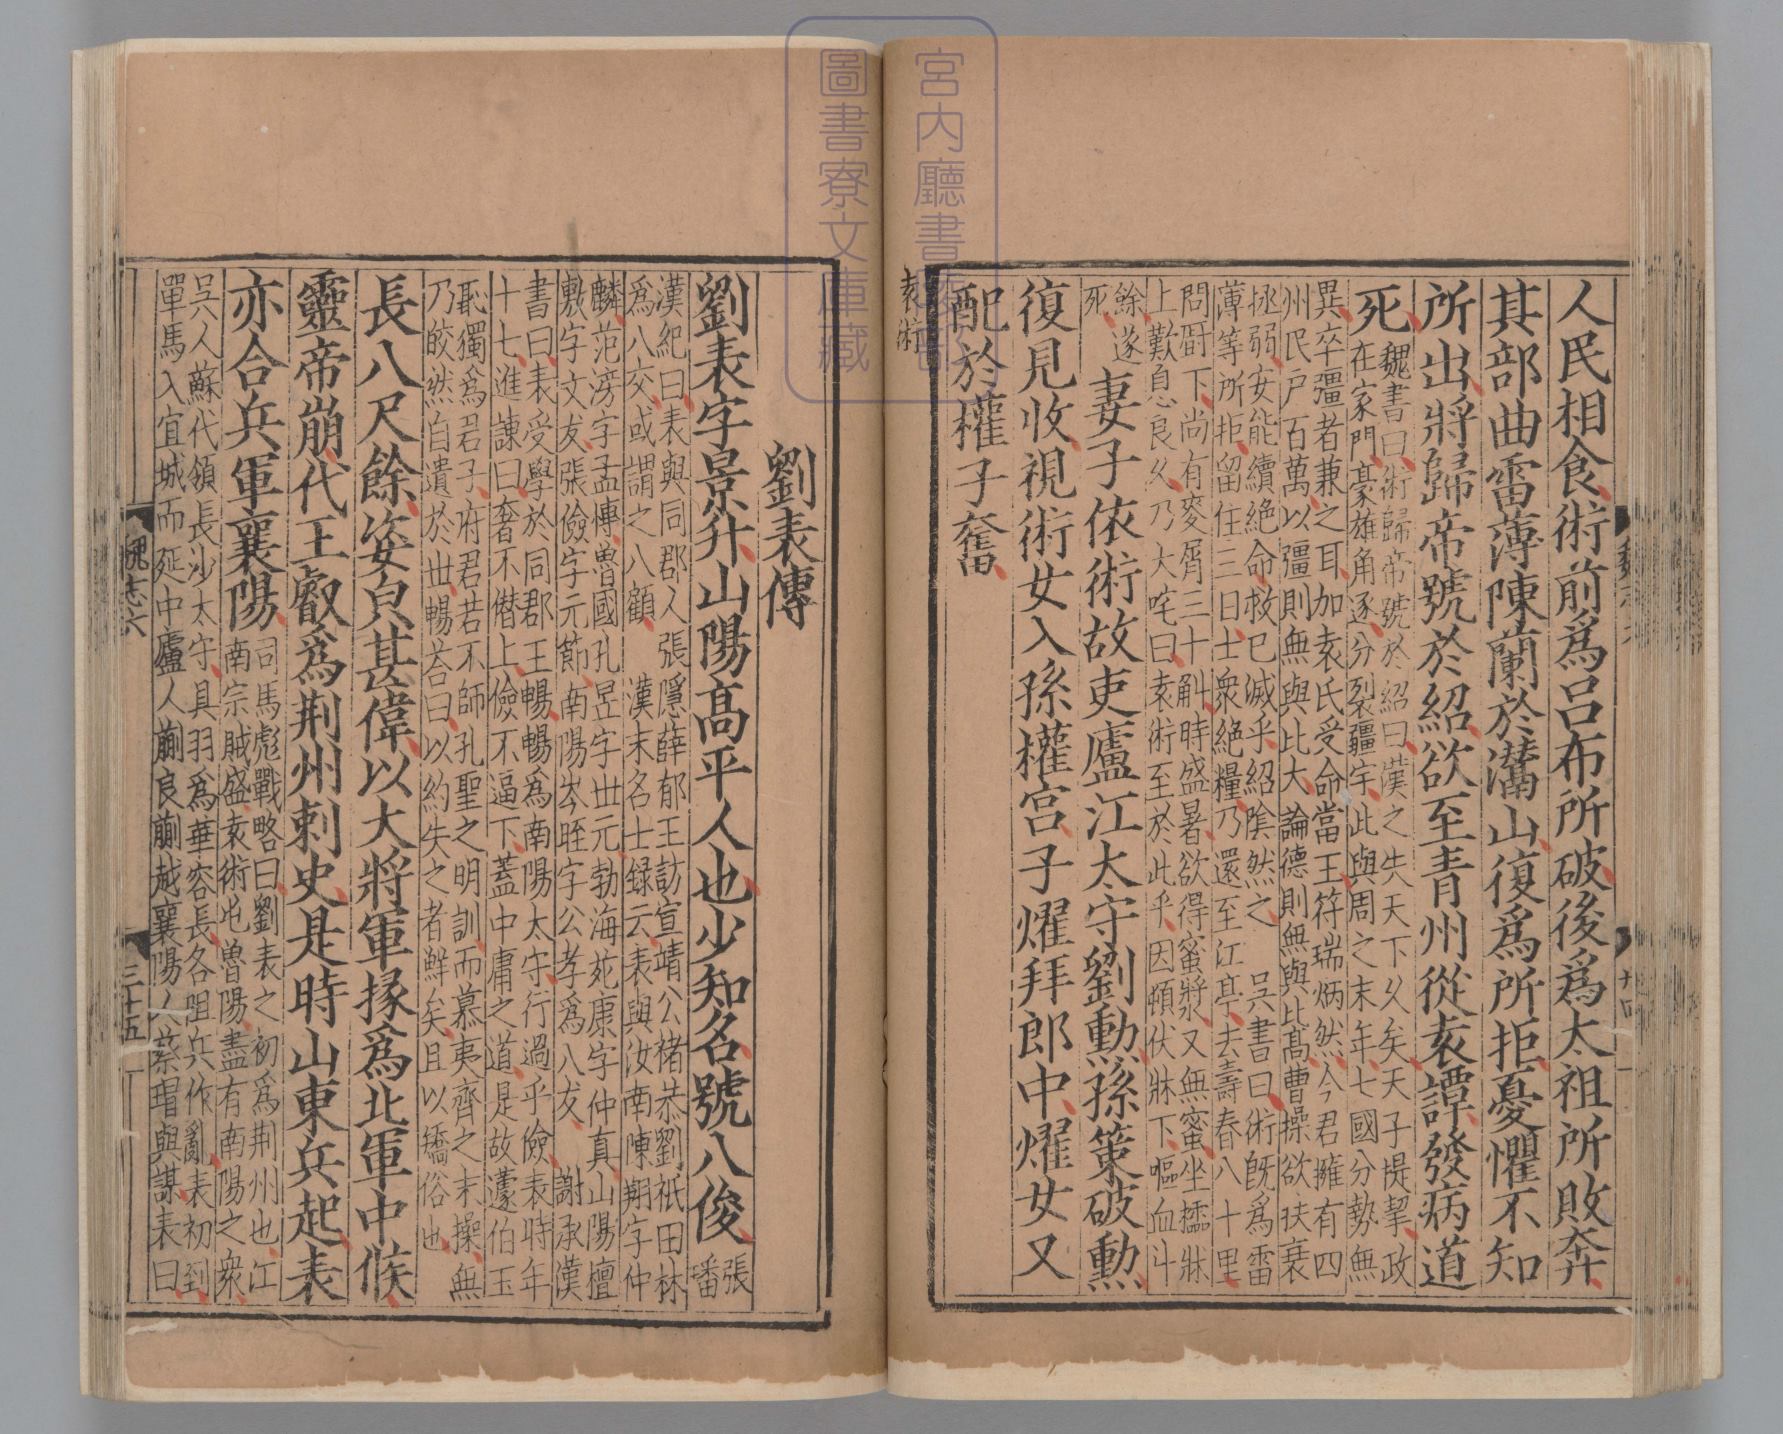 人民相食術前爲呂布所破後爲太祖所敗奔
其部曲雷薄陳蘭於灊山復爲所拒憂懼不知
所出將歸帝號於紹欲至青州從袁譚發病道
死魏書曰術歸帝號於紹曰漢之失天下久矣天子提挈政
在家門豪雄角逐分裂疆宇此與周之末年七國分勢無
異卒彊者兼之耳加袁氏受命當王符瑞炳然今君擁有四
州民戶百萬以彊則無與比大論德則無與比高曹操欲扶衰
拯弱安能續絕命救已滅乎紹陰然之 吳書曰術旣爲雷
薄等所拒留住三日士衆絕糧乃還至江亭去壽春八十里
問厨下尚有麥屑三十斛時盛暑欲得蜜漿又無蜜坐櫺牀
上歎息良久乃大咤曰袁術至於此乎因頓伏牀下嘔血斗
餘遂
死
妻子依術故吏廬江太守劉勳孫策破勳
復見收視術女入孫權宮子燿拜郎中燿女又
配於權子奮
袁術
劉表傳
劉表字景升山陽高平人也少知名號八俊張
璠
漢紀曰表與同郡人張隱薛郁王訪宣靖公褚恭劉祇田林
爲八交或謂之八顧 漢末名士録云表與汝南陳翔字仲
麟范滂字孟博魯國孔昱字世元勃海苑康字仲真山陽檀
敷字文友張儉字元節南陽岑晊字公孝爲八友 謝承漢
書曰表受學於同郡王暢暢爲南陽太守行過乎儉表時年
十七進諫曰奢不僭上儉不逼下蓋中庸之道是故蘧伯玉
恥獨爲君子府君若不師孔聖之明訓而慕夷齊之末操無
乃皎然自遺於世暢荅曰以約失之者鮮矣且以矯俗也
長八尺餘姿皃甚偉以大將軍掾爲北軍中候
靈帝崩代王叡爲荆州刺史是時山東兵起表
亦合兵軍襄陽司馬彪戰略曰劉表之初爲荆州也江
南宗賊盛袁術屯魯陽盡有南陽之衆
吳人蘇代領長沙太守具羽爲華容長各阻兵作亂表初到
單馬入宜城而延中廬人蒯良蒯越襄陽人蔡瑁與謀表曰
魏志六
三十五
宮内廳書陵部
圖書寮文庫藏